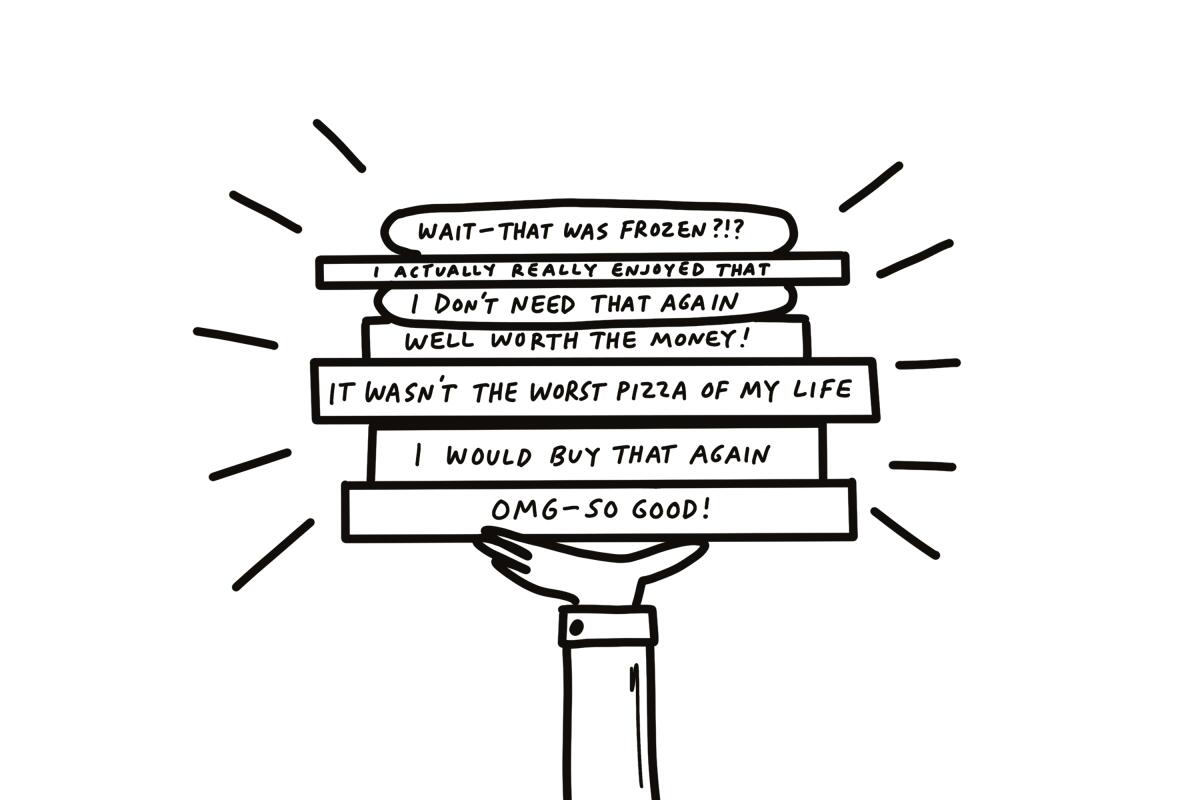 WAIT-THAT WAS FROZEN?!?
I ACTUALLY REALLY ENJOYED THAT
I DON'T NEED THAT AGAIN
WELL WORTH THE MONEY!
IT WASN'T THE WORST PIZZA OF MY LIFE
I WOULD BUY THAT AGAIN
OMG-SO GOOD!